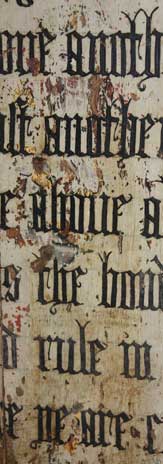 one anoth
st another
e aboue a
s the bon
d rule in
e ye are c